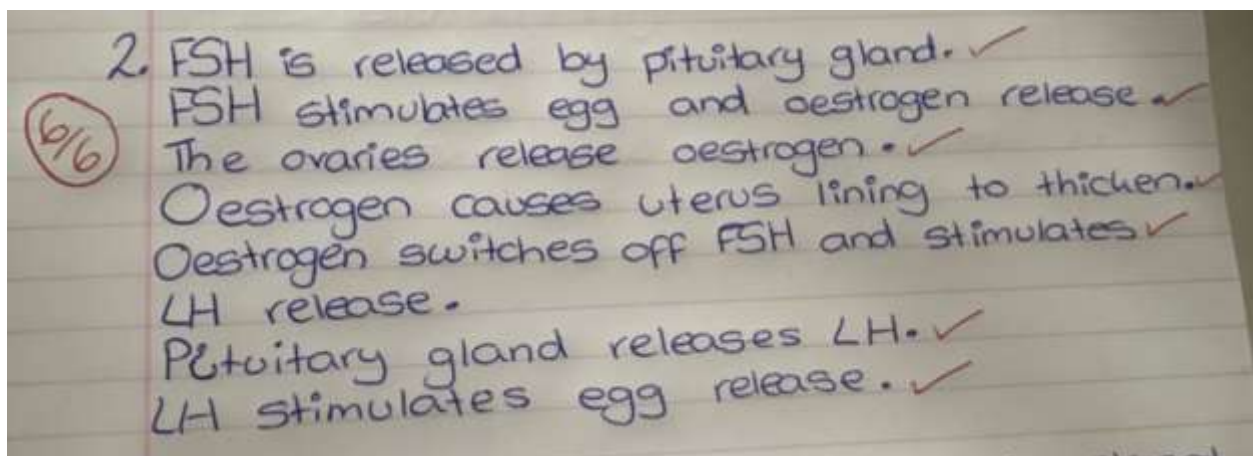 2. FSH is released by pituitary gland. ✓
6/6
FSH stimulates egg and oestrogen release. ✓
The ovaries release oestrogen. ✓
Oestrogen causes uterus lining to thicken. ✓
Oestrogen switches off FSH and stimulates ✓
LH release.
Pituitary gland releases LH. ✓
LH stimulates egg release. ✓